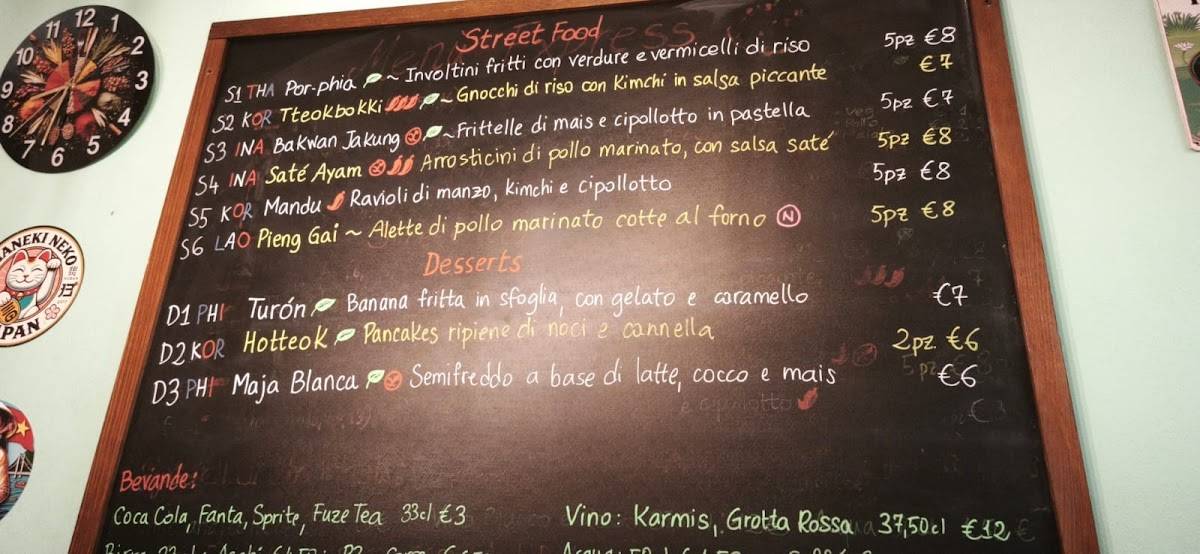 Street Food
S1 THA Por-phia ~ Involtini fritti con verdure e vermicelli di riso 5pz €8
S2 KOR Tteokbokki ~ Gnocchi di riso con Kimchi in salsa piccante €7
S3 INA Bakwan Jakung ~ Frittelle di mais e cipollotto in pastella 5pz €7
S4 INA Saté Ayam Arrosticini di pollo marinato, con salsa saté 5pz €8
S5 KOR Mandu Ravioli di manzo, kimchi e cipollotto 5pz €8
S6 LAO Pieng Gai ~ Alette di pollo marinato cotte al forno N 5pz €8
Desserts
D1 PHI Turón Banana fritta in sfoglia, con gelato e caramello €7
D2 KOR Hotteok Pancakes ripiene di noci e cannella 2pz. €6
D3 PHI Maja Blanca Semifreddo a base di latte, cocco e mais €6
Bevande:
Coca Cola, Fanta, Sprite, Fuze Tea 33cl €3
Vino: Karmis, Grotta Rossa 37,50cl €12
12 1 2 3 4 5 6 7 8 9 10 11
MANEKI NEKO
JAPAN